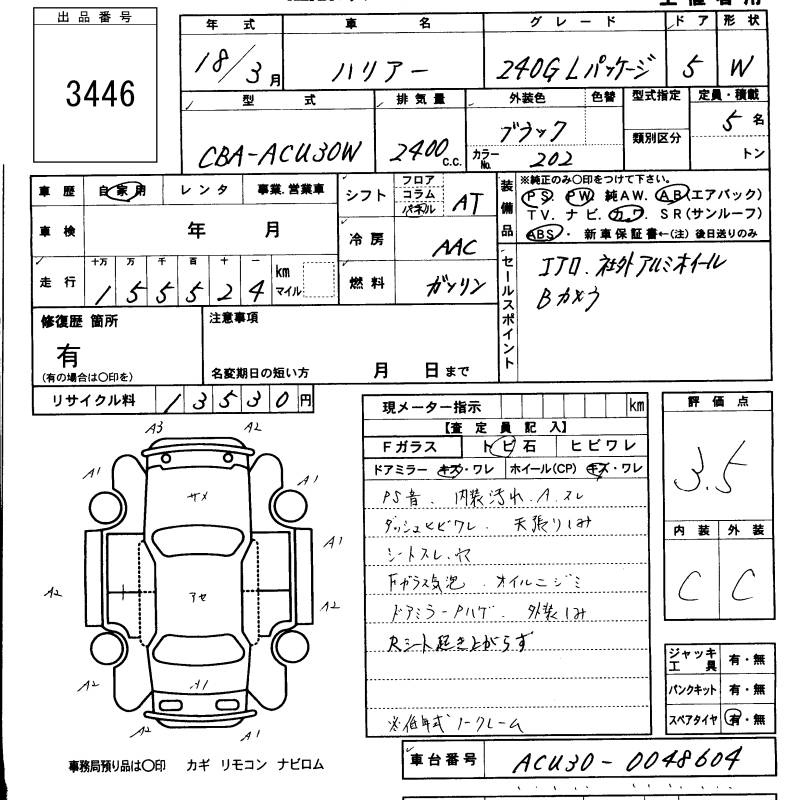 出品番号
3446
年式
18/3月
車名
ハリアー
グレード
240G Lパッケージ
ドア
5
形状
W
型式
CBA-ACU30W
排気量
2400 c.c.
外装色
ブラック
色替
カラーNo. 202
型式指定
類別区分
定員・積載
5名
トン
車歴
自家用 レンタ 事業.営業車
車検
年 月
走行
十万 万 千 百 十 一
1 5 5 5 2 4
km
マイル
シフト
フロア
コラム
パネル
AT
冷房
AAC
燃料
ガソリン
装備品
※純正のみ〇印をつけて下さい。
PS. PW. 純AW. AB(エアバック)
TV. ナビ. カワ. SR(サンルーフ)
ABS・ 新車保証書←(注) 後日送りのみ
セールスポイント
エアロ.社外アルミホイール
Bカメラ
修復歴 箇所
有
(有の場合は〇印を)
注意事項
名変期日の短い方 月 日まで
リサイクル料 13530円
現メーター指示 km
【査定員記入】
Fガラス トビ石 ヒビワレ
ドアミラー キズ・ワレ ホイール(CP) キズ・ワレ
PS音. 内装汚れ.A.スレ
ダッシュヒビワレ. 天張りシミ
シートスレ.ヤ
Fガラス気泡. オイルニジミ
ドアミラーPハゲ. 外装シミ
Rシート起き上がらず
※低年式ノークレーム
評価点
3.5
内装 外装
C C
ジャッキ工具 有・無
パンクキット 有・無
スペアタイヤ 有・無
A3 A2
A1 A1
サメ
A1
A2 A2
アセ
A1
A2 A2
A2 A1
事務局預り品は〇印 カギ リモコン ナビロム
車台番号 ACU30-0048604